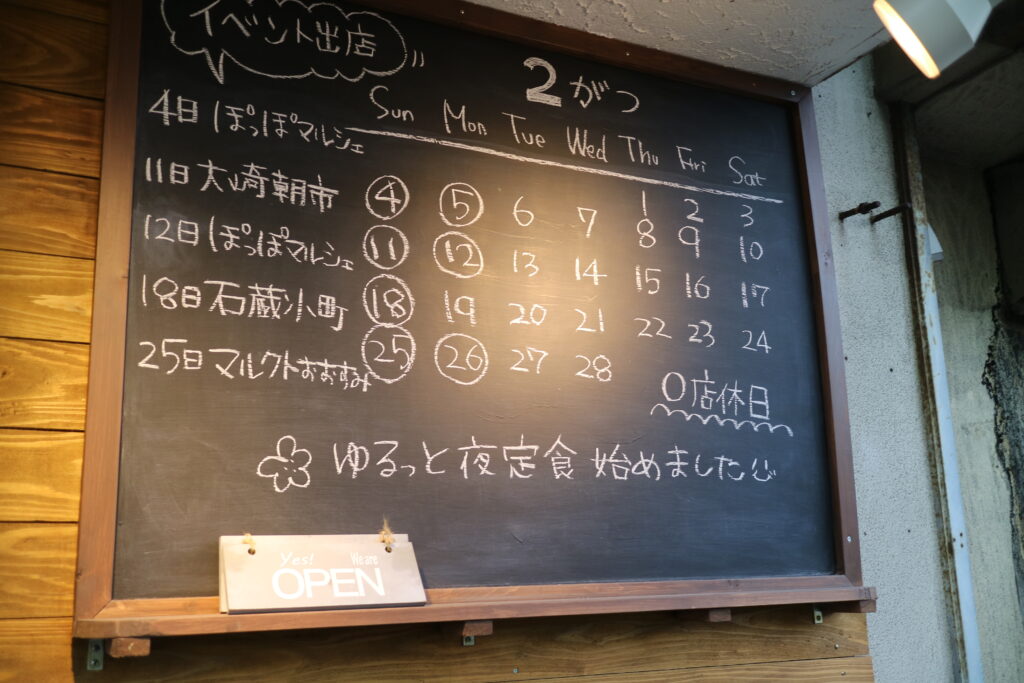 イベント出店
2がつ
4日 ぽっぽマルシェ
11日 大崎朝市
12日 ぽっぽマルシェ
18日 石蔵小町
25日 マルクトおおすみ
Sun Mon Tue Wed Thu Fri Sat
1 2 3
4 5 6 7 8 9 10
11 12 13 14 15 16 17
18 19 20 21 22 23 24
25 26 27 28
○店休日
ゆるっと夜定食 始めました
Yes! We are
OPEN